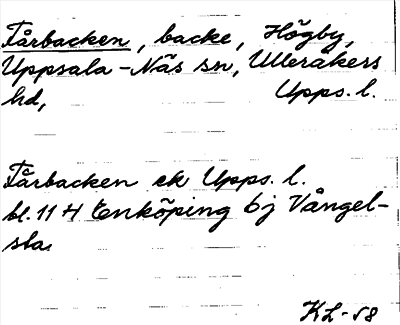 Fårbacken, backe, Högby,
Uppsala-Näs sn, Ulleråkers
hd, Upps. l.
Fårbacken ek Upps. l.
bl. 11 H Enköping 6j Vångel-
sta
KL-58